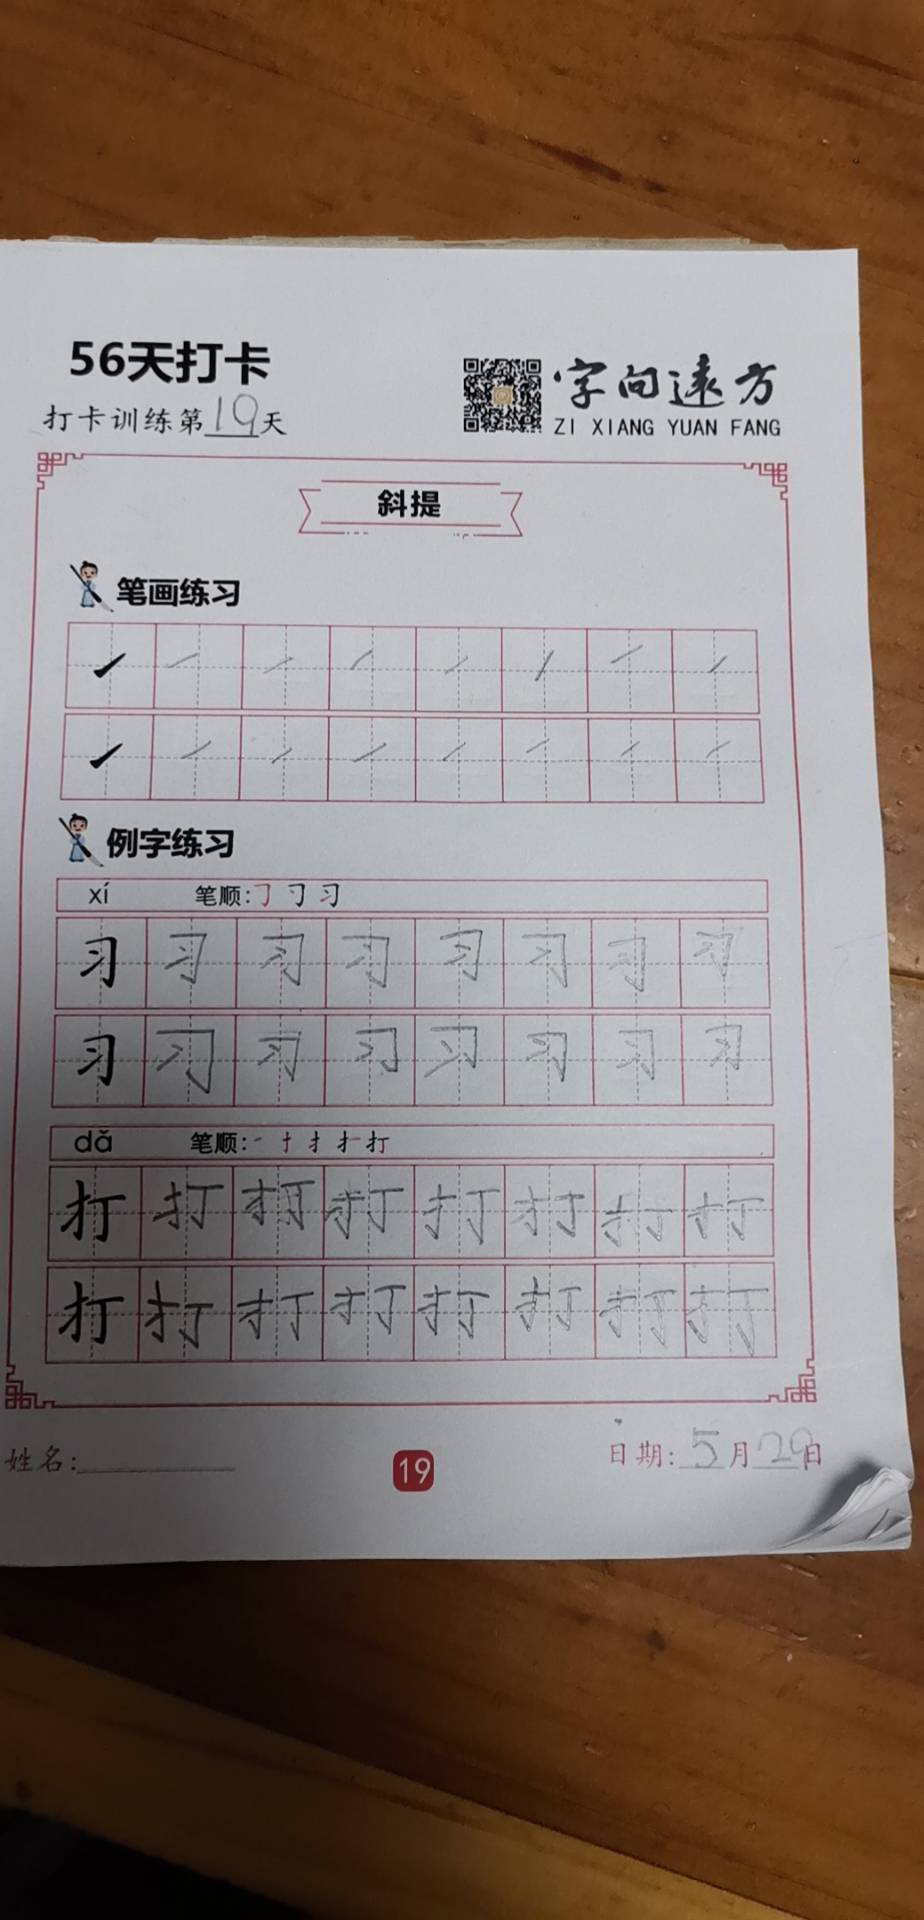 56天打卡
打卡训练第19天
字向远方
ZI XIANG YUAN FANG
斜提
笔画练习
例字练习
xí 笔顺:㇆ 习
习 习 习 习 习 习 习 习
习 习 习 习 习 习 习 习
dǎ 笔顺:一 十 扌 打
打 打 打 打 打 打 打 打
打 打 打 打 打 打 打 打
姓名:
19
日期:5月29日